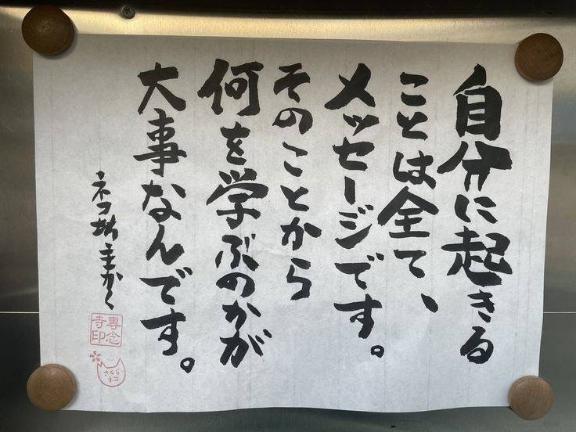 自分に起きる
ことは全て、
メッセージです。
そのことから
何を学ぶのかが
大事なんです。
ネコ坊主かく
専念
寺印
さくら
ネコ